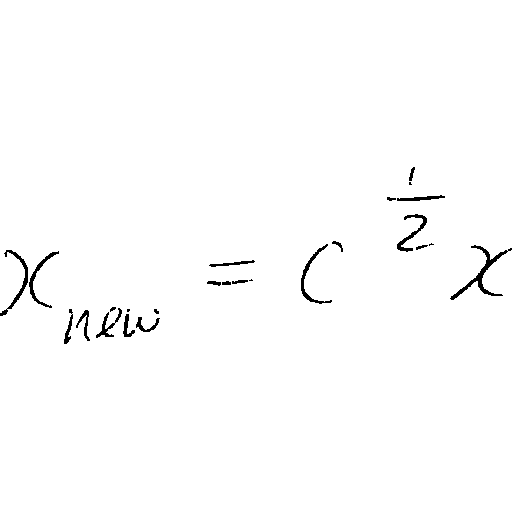 x_{new} = c^{\frac{1}{2}} x